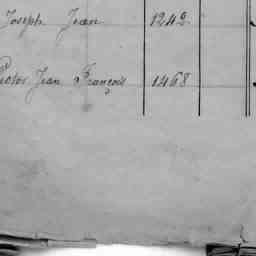 Joseph Jean 1242
Victor Jean François 1468